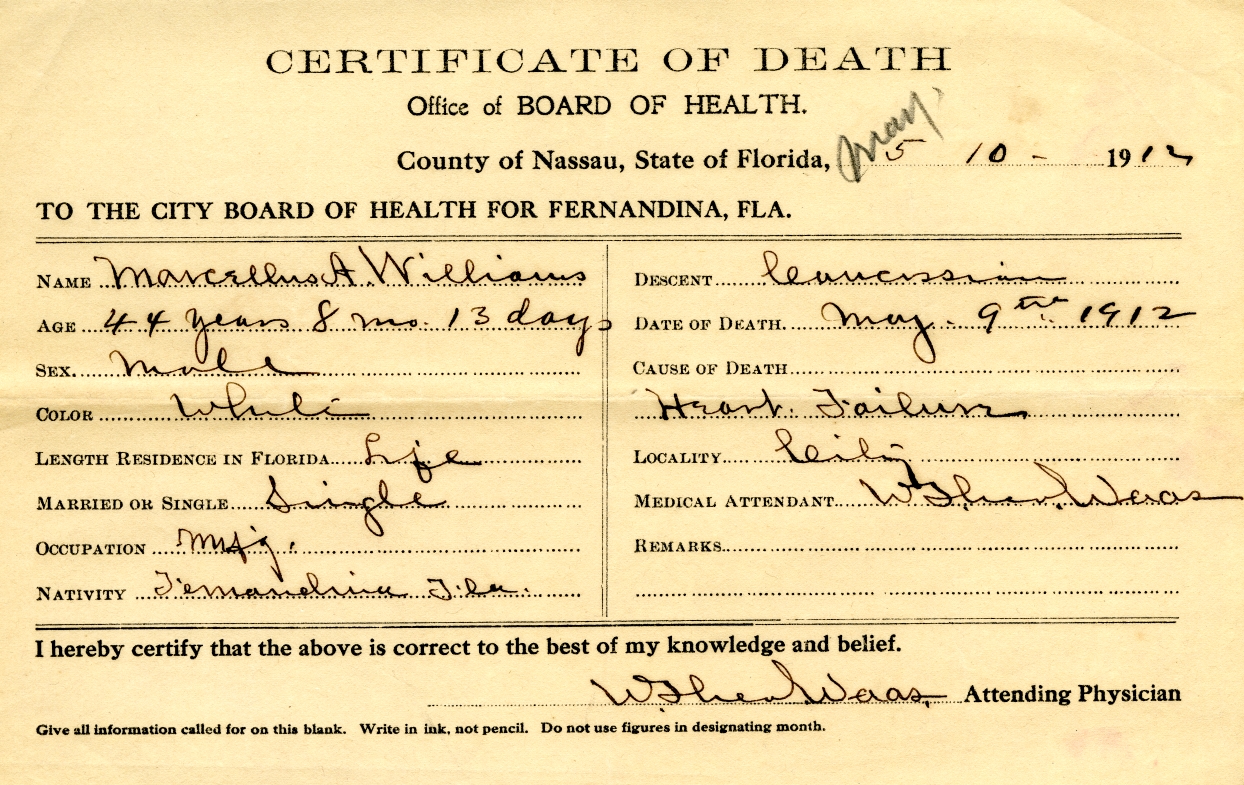 CERTIFICATE OF DEATH
Office of BOARD OF HEALTH.
County of Nassau, State of Florida, May 5 10 - 1912
TO THE CITY BOARD OF HEALTH FOR FERNANDINA, FLA.
NAME Marcellus A. Williams
AGE 44 years 8 mo. 13 days
SEX. Male
COLOR White
LENGTH RESIDENCE IN FLORIDA Life
MARRIED OR SINGLE Single
OCCUPATION Mfg.
NATIVITY Fernandina Fla.
DESCENT Caucassian
DATE OF DEATH. May. 9th 1912
CAUSE OF DEATH
Heart Failure
LOCALITY City
MEDICAL ATTENDANT Waas
REMARKS
I hereby certify that the above is correct to the best of my knowledge and belief.
Waas Attending Physician
Give all information called for on this blank. Write in ink, not pencil. Do not use figures in designating month.